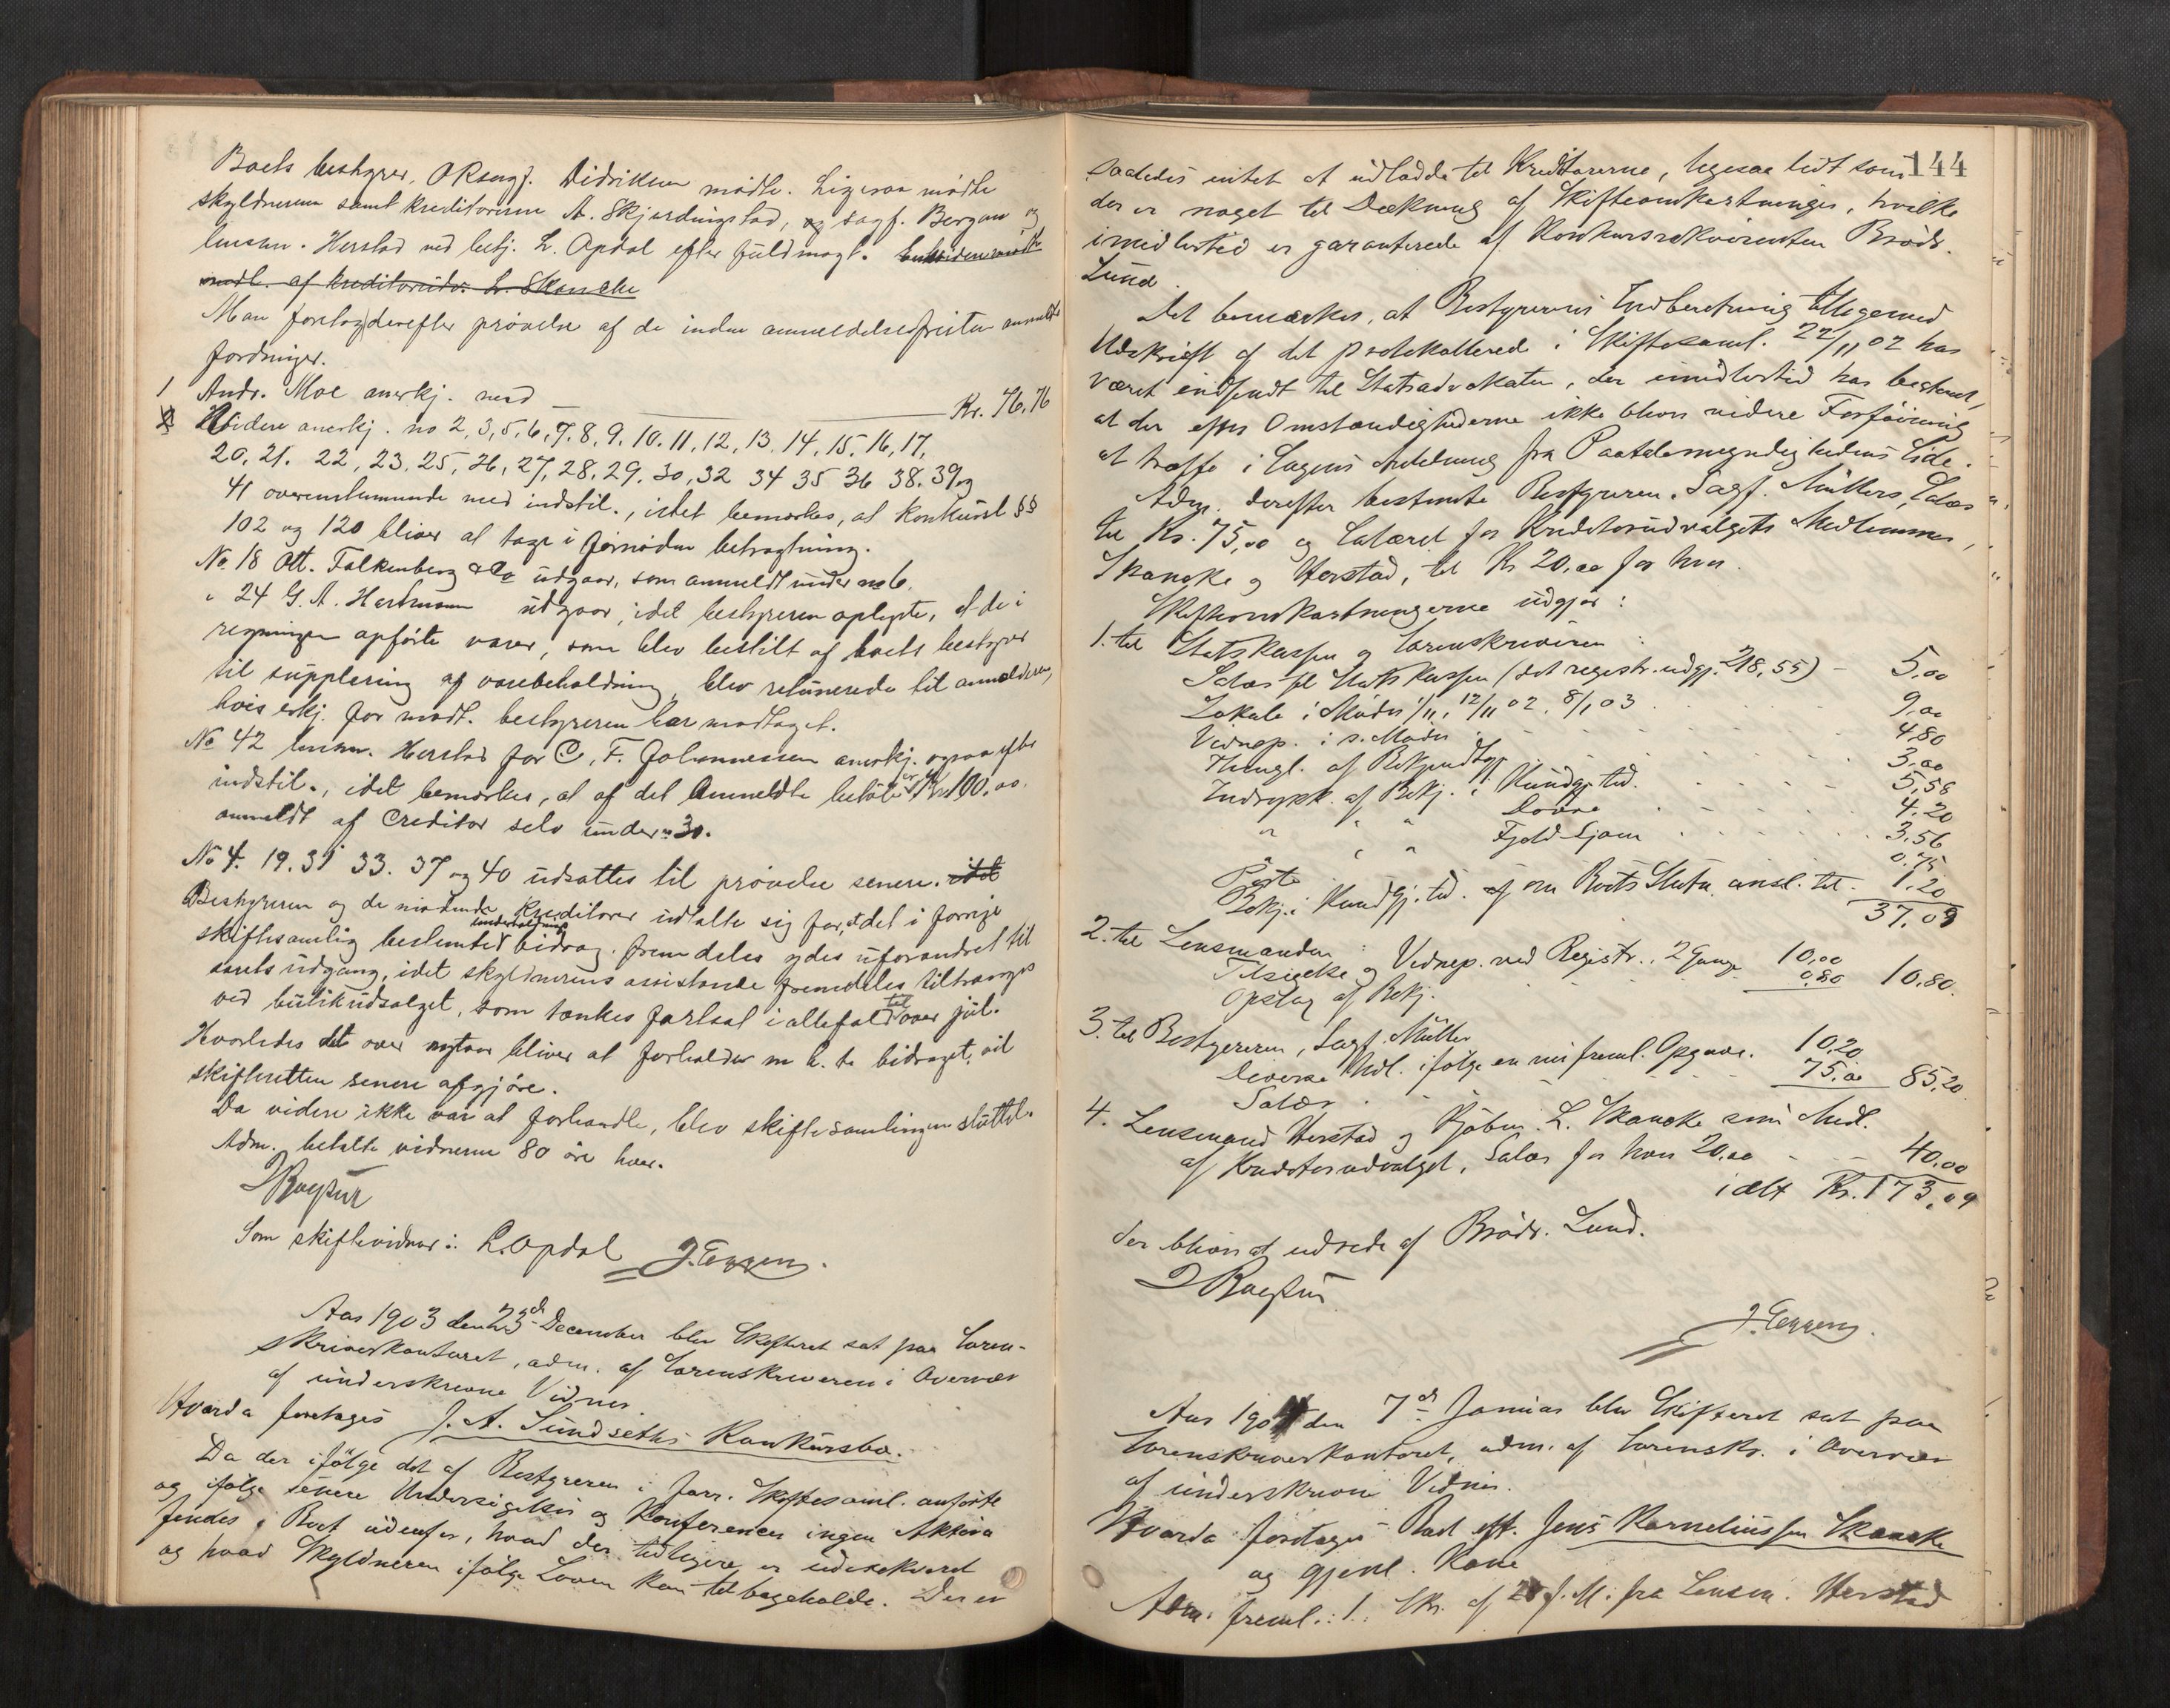 Boets bestyrer, ORsagf. Didriksen mødte. Ligesaa mødte
skyldneren samt kreditorerne A. Skjerdingstad, og sagf. Bergan og
lensm. Herstad ved betj. L. Opdal efter fuldmagt.
modt. af kreditorudv. L. Skancke
Man foretog derefter prøvelse af de inden anmeldelsesfristen anmeldte
fordringer.
1 Andr. Moe anerkj. med Kr. 76,76
Videre anerkj. no 2, 3, 5, 6, 7. 8, 9. 10. 11, 12, 13. 14, 15, 16, 17,
20, 21. 22, 23. 25, 26, 27, 28, 29. 30, 32 34 35 36 38. 39 og
41 overensstemmende med indstil., idet bemærkes, at konkursl §§
102 og 120 bliver at tage i fornøden betragtning.
No 18 Ott. Falkenberg & Co udgaar, som anmeldt under no 6.
" 24 G. A. Hartmann udgaar, idet bestyreren oplyste, at de i
regningen opførte varer, som blev bestilt af boets bestyrer
til supplering af varebeholdning, blev returnerede til anmelderen,
hvis erkj. for modt. bestyreren har modtaget.
No 42 lensm. Herstad for C. F. Johannessen anerkj. ogsaa efter
indstil., idet bemærkes, at af det anmeldte beløb er Kr 100,00.
anmeldt af Creditor selv under no 30.
No 4. 19. 31 33. 37 og 40 udsattes til prøvelse senere. idet
Bestyreren og de mødende kreditorer udtalte sig for, at det i forrige
skiftesamling bestemte underholdnings bidrag fremdeles ydes uforandret til
aarets udgang, idet skyldnerens assistance fremdeles tiltrænges
ved butikudsalget, som tænkes fortsat i allefald til over jul.
Hvorledes det over nytaar bliver at forholdes m. h. t. bidraget, vil
skifteretten senere afgjøre.
Da videre ikke var at forhandle, blev skiftesamlingen sluttet.
Adm. betalte vidnerne 80 øre hver.
Som skiftevidner: L. Opdal J. Eggen.
Aar 1903 den 23d December blev Skifteret sat paa Soren-
skriverkontoret, adm. af Sorenskriveren i Overvær
af underskrevne Vidner
Hvorda foretoges J. A. Sundseths Konkursbo.
Da der ifølge det af Bestyreren i forr. Skiftesaml. anførte
og ifølge senere Undersøgelser og Konferencer ingen Aktiva
findes i Boet udenfor, hvad der tidligere er
og hvad Skyldneren ifølge Loven kan tilbageholde. Der er
144
saaledes intet at udlodde til Kreditorerne, ligesaa lidt som
der er noget til Dækning af Skifteomkostninger, hvilke
imidlertid er garanterede af Konkursrekvirenten Brødr.
Lund.
Det bemærkes, at Bestyrerens Indberetning tilligemed
Udskrift af det protokollerede i Skiftesaml. 22/11 02 har
været indsendt til Statsadvokaten, der imidlertid har bestemt,
at der efter Omstændighederne ikke bliver videre Forføining
at træffe i Sagens Anledning fra Paatalemyndighedens Side.
Adm. derefter bestemte Bestyreren, Sagf. Müllers, Salær
til Kr. 75,00 og Salæret for Kreditorudvalgets Medlemmer,
Skancke og Herstad, til Kr 20,00 for hver.
Skifteomkostningerne udgjør:
1. til Statskassen og Sorenskriveren:
Salær til Statskassen (det registr. udgj. 218,55) - 5,00
Lokale i Møder 1/11, 12/11 02, 8/1 03 9,00
Vidnep. i s. Møder 4,80
Hængl. af Bekjendtgj. 3,00
Indrykk. af Bekj. i Kundgj. tid. 5,58
" " " Dovre 4,20
" " " Fjeld-Ljom 3,56
Porto 0,75
Bekj. i Kundgj. tid. af om Boets Slutn. ansl. til 1,20
37,09
2. til Lensmanden:
Tilsigelse og Vidnep. ved Registr., 2 Gange 10,00
Opslag af Bekj. 0,80 10,80.
3. til Bestyreren, Sagf. Müller
Diverse Udl. ifølge en nu freml. Opgave. 10,20
Salær 75,00 85,20
4. Lensmand Herstad og Kjøbm. L. Skancke som Medl.
af Kreditorudvalget, Salær for hver 20,00 - - 40,00
ialt Kr. 173,09
der bliver at udrede af Brødr. Lund.
J. Eggen.
Aar 1904 den 7d Januar blev Skifteret sat paa
Sorenskriverkontoret, adm. af Sorenskr. i Overvær
af underskrevne Vidner.
Hvorda foretoges Boet eft. Jens Karneliussen Skancke
og gjenl. Kone
Adm. freml.: 1. Skr. af 28 f. M. fra Lensm. Herstad